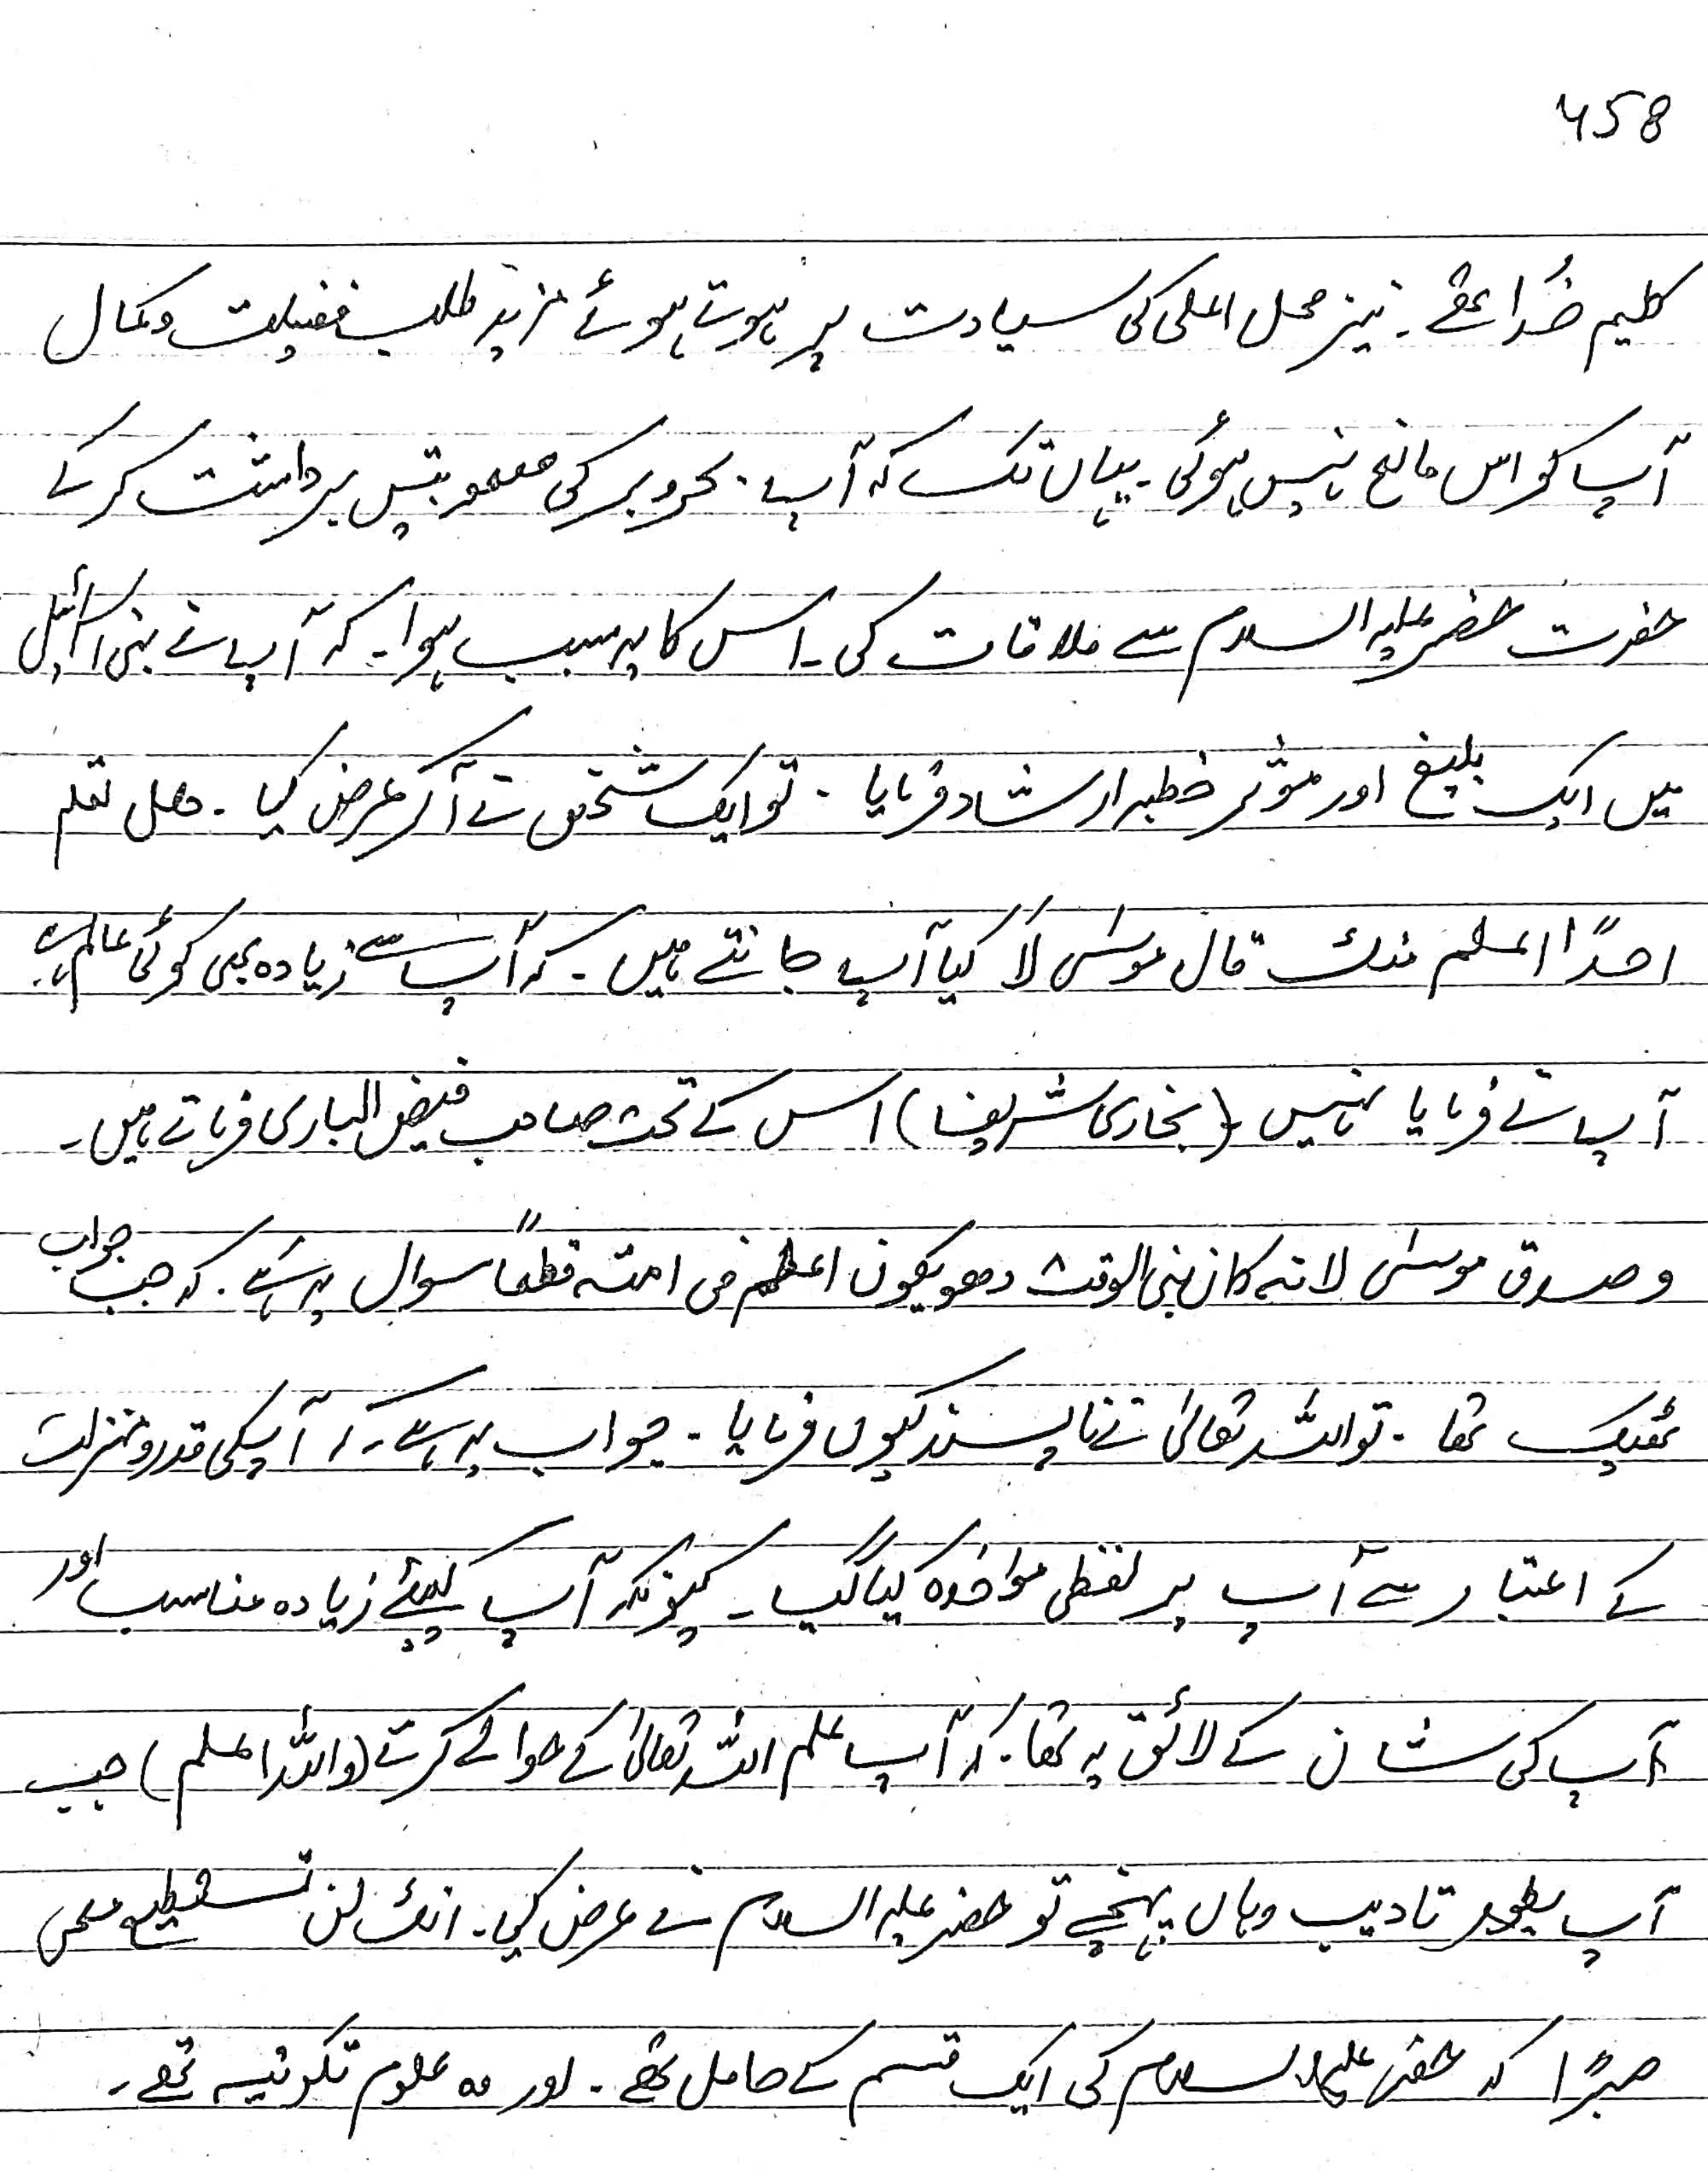 458
کلیم خُدا تھے۔ نیز محل اعلی کی سیادت پر ہوتے ہوئے مزید طلب فضیلت وکمال
آپ کو اس مانع نہیں ہوئی۔ یہاں تک کہ آپ۔ بحروبر کی صعوبتیں برداشت کرکے
حضرت خضر علیہ السلام سے ملاقات کی۔ اس کا یہ سبب ہوا۔ کہ آپ نے بنی اسرائیل
میں ایک بلیغ اور مؤثر خطبہ ارشاد فرمایا۔ تو ایک شخص نے آکر عرض کیا۔ ھل تعلم
احدًا اعلم منك قال موسیٰ لَا کیا آپ جانتے ہیں۔ کہ آپ سے زیادہ بھی کوئی عالم ہے
آپ نے فرمایا نہیں۔ (بخاری شریف) اس کے تحت صاحب فیض الباری فرماتے ہیں۔
وصدق موسیٰ لانہ کان نبی الوقت وھو یکون اعلم فی امتہ قطعاً سوال یہ ہے۔ کہ جب جواب
ٹھیک تھا۔ تو اللہ تعالیٰ نے ناپسند کیوں فرمایا۔ جواب یہ ہے۔ کہ آپکی قدرومنزلت
کے اعتبار سے آپ پر لفظی مواخذہ کیا گیا۔ کیونکہ آپ کیلئے زیادہ مناسب اور
آپ کی شان کے لائق یہ تھا۔ کہ آپ علم اللہ تعالیٰ کے حوالے کرتے (واللہ اعلم) جب
آپ بطور تادیب وہاں پہنچے تو خضر علیہ السلام نے عرض کی۔ انك لن تستطیع معی
صبرًا کہ خضر علیہ السلام کی ایک قسم کے حامل تھے۔ اور وہ علوم تکونیہ تھے۔